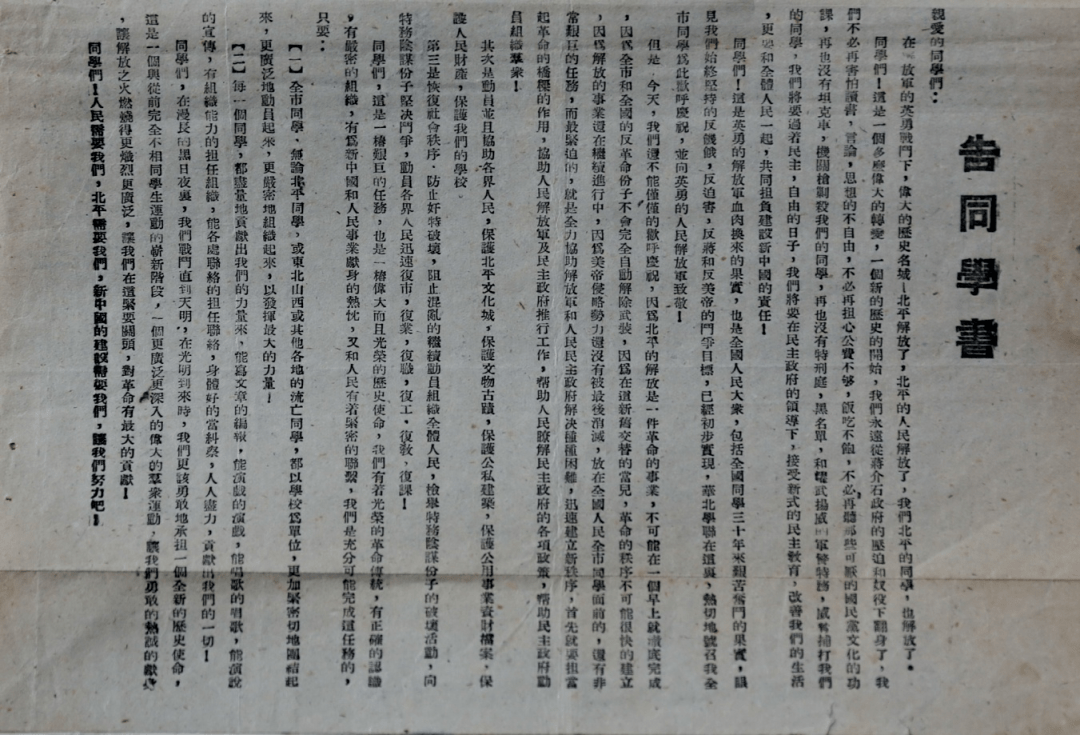 告同學書
親愛的同學們：
在 放軍的英勇戰鬥下，偉大的歷史名城—北平解放了，北平的人民解放了，我們北平的同學，也解放了。
同學們！這是一個多麼偉大的轉變，一個新的歷史的開始，我們永遠從蔣介石政府的壓迫和奴役下翻身了，我
們不必再害怕讀書，言論，思想的不自由，不必再担心公費不够，飯吃不飽，不必再聽那些可厭的國民黨文化的功
課，再也沒有項克車，機關槍剿殺我們的同學，再也沒有特刑庭，黑名單，和耀武揚威的軍警特務，威脅捕打我們
的同學，我們將要過着民主，自由的日子，我們將要在民主政府的領導下，接受新式的民主教育，改善我們的生活
，更要和全體人民一起，共同担負建設新中國的責任！
同學們！這是英勇的解放軍血肉換來的果實，也是全國人民大衆，包括全國同學三十年來艱苦奮鬥的果實，眼
見我們始終堅持的反饑餓，反迫害，反蔣和反美帝的鬥爭目標，已經初步實現，華北學聯在這裏，熱切地號召我全
市同學爲此歡呼慶祝，並向英勇的人民解放軍致敬！
但是，今天，我們還不能僅僅的歡呼慶祝，因爲北平的解放是一件革命的事業，不可能在一個早上就澈底完成
，因爲全市和全國的反革命份子不會完全自動解除武裝，因爲在這新舊交替的當兒，革命的秩序不可能很快的建立
，因爲解放的事業還在繼續進行中，因爲美帝侵略勢力還沒有被最後消滅，放在全國人民全市同學面前的，還有非
常艱巨的任務，而最緊迫的，就是全力協助解放軍和人民民主政府解決種種困難，迅速建立新秩序，首先就要担當
起革命的橋樑的作用，協助人民解放軍及民主政府推行工作，帮助人民瞭解民主政府的各項政策，帮助民主政府動
員組織羣衆！
其次是動員並且協助各界人民，保護北平文化城，保護文物古蹟，保護公私建築，保護公用事業資財檔案，保
護人民財產，保護我們的學校
第三是恢復社會秩序，防止奸特破壞，阻止混亂的繼續動員組織全體人民，檢舉特務陰謀份子的破壞活動，向
特務陰謀份子堅決鬥爭，動員各界人民迅速復市，復業，復職，復工，復教，復課！
同學們，這是一樁艱巨的任務，也是一樁偉大而且光榮的歷史使命，我們有着光榮的革命傳統，有正確的認識
，有嚴密的組織，有爲新中國和人民事業獻身的熱忱，又和人民有着緊密的聯繫，我們是充分可能完成這任務的，
只要：
【一】全市同學，無論北平同學，或東北山西或其他各地的流亡同學，都以學校爲單位，更加緊密切地團結起
來，更廣泛地動員起來，更嚴密地組織起來，以發揮最大的力量！
【二】每一個同學，都盡量地貢獻出我們的力量來，能寫文章的編報，能演戲的演戲，能唱歌的唱歌，能演說
的宣傳，有組織能力的担任組織，能各處聯絡的担任聯絡，身體好的當糾察，人人盡力，貢獻出我們的一切！
同學們，在漫長的黑日夜裏，我們戰鬥直到天明，在光明到來時，我們更該勇敢地承担一個全新的歷史使命，
這是一個與從前完全不相同學生運動的嶄新階段，一個更廣泛更深入的偉大的羣衆運動，讓我們勇敢的熱誠的獻身
，讓解放之火燃燒得更熾烈更廣泛，讓我們在這緊要關頭，對革命有最大的貢獻！
同學們！人民需要我們，北平需要我們，新中國的建設需要我們，讓我們努力吧！